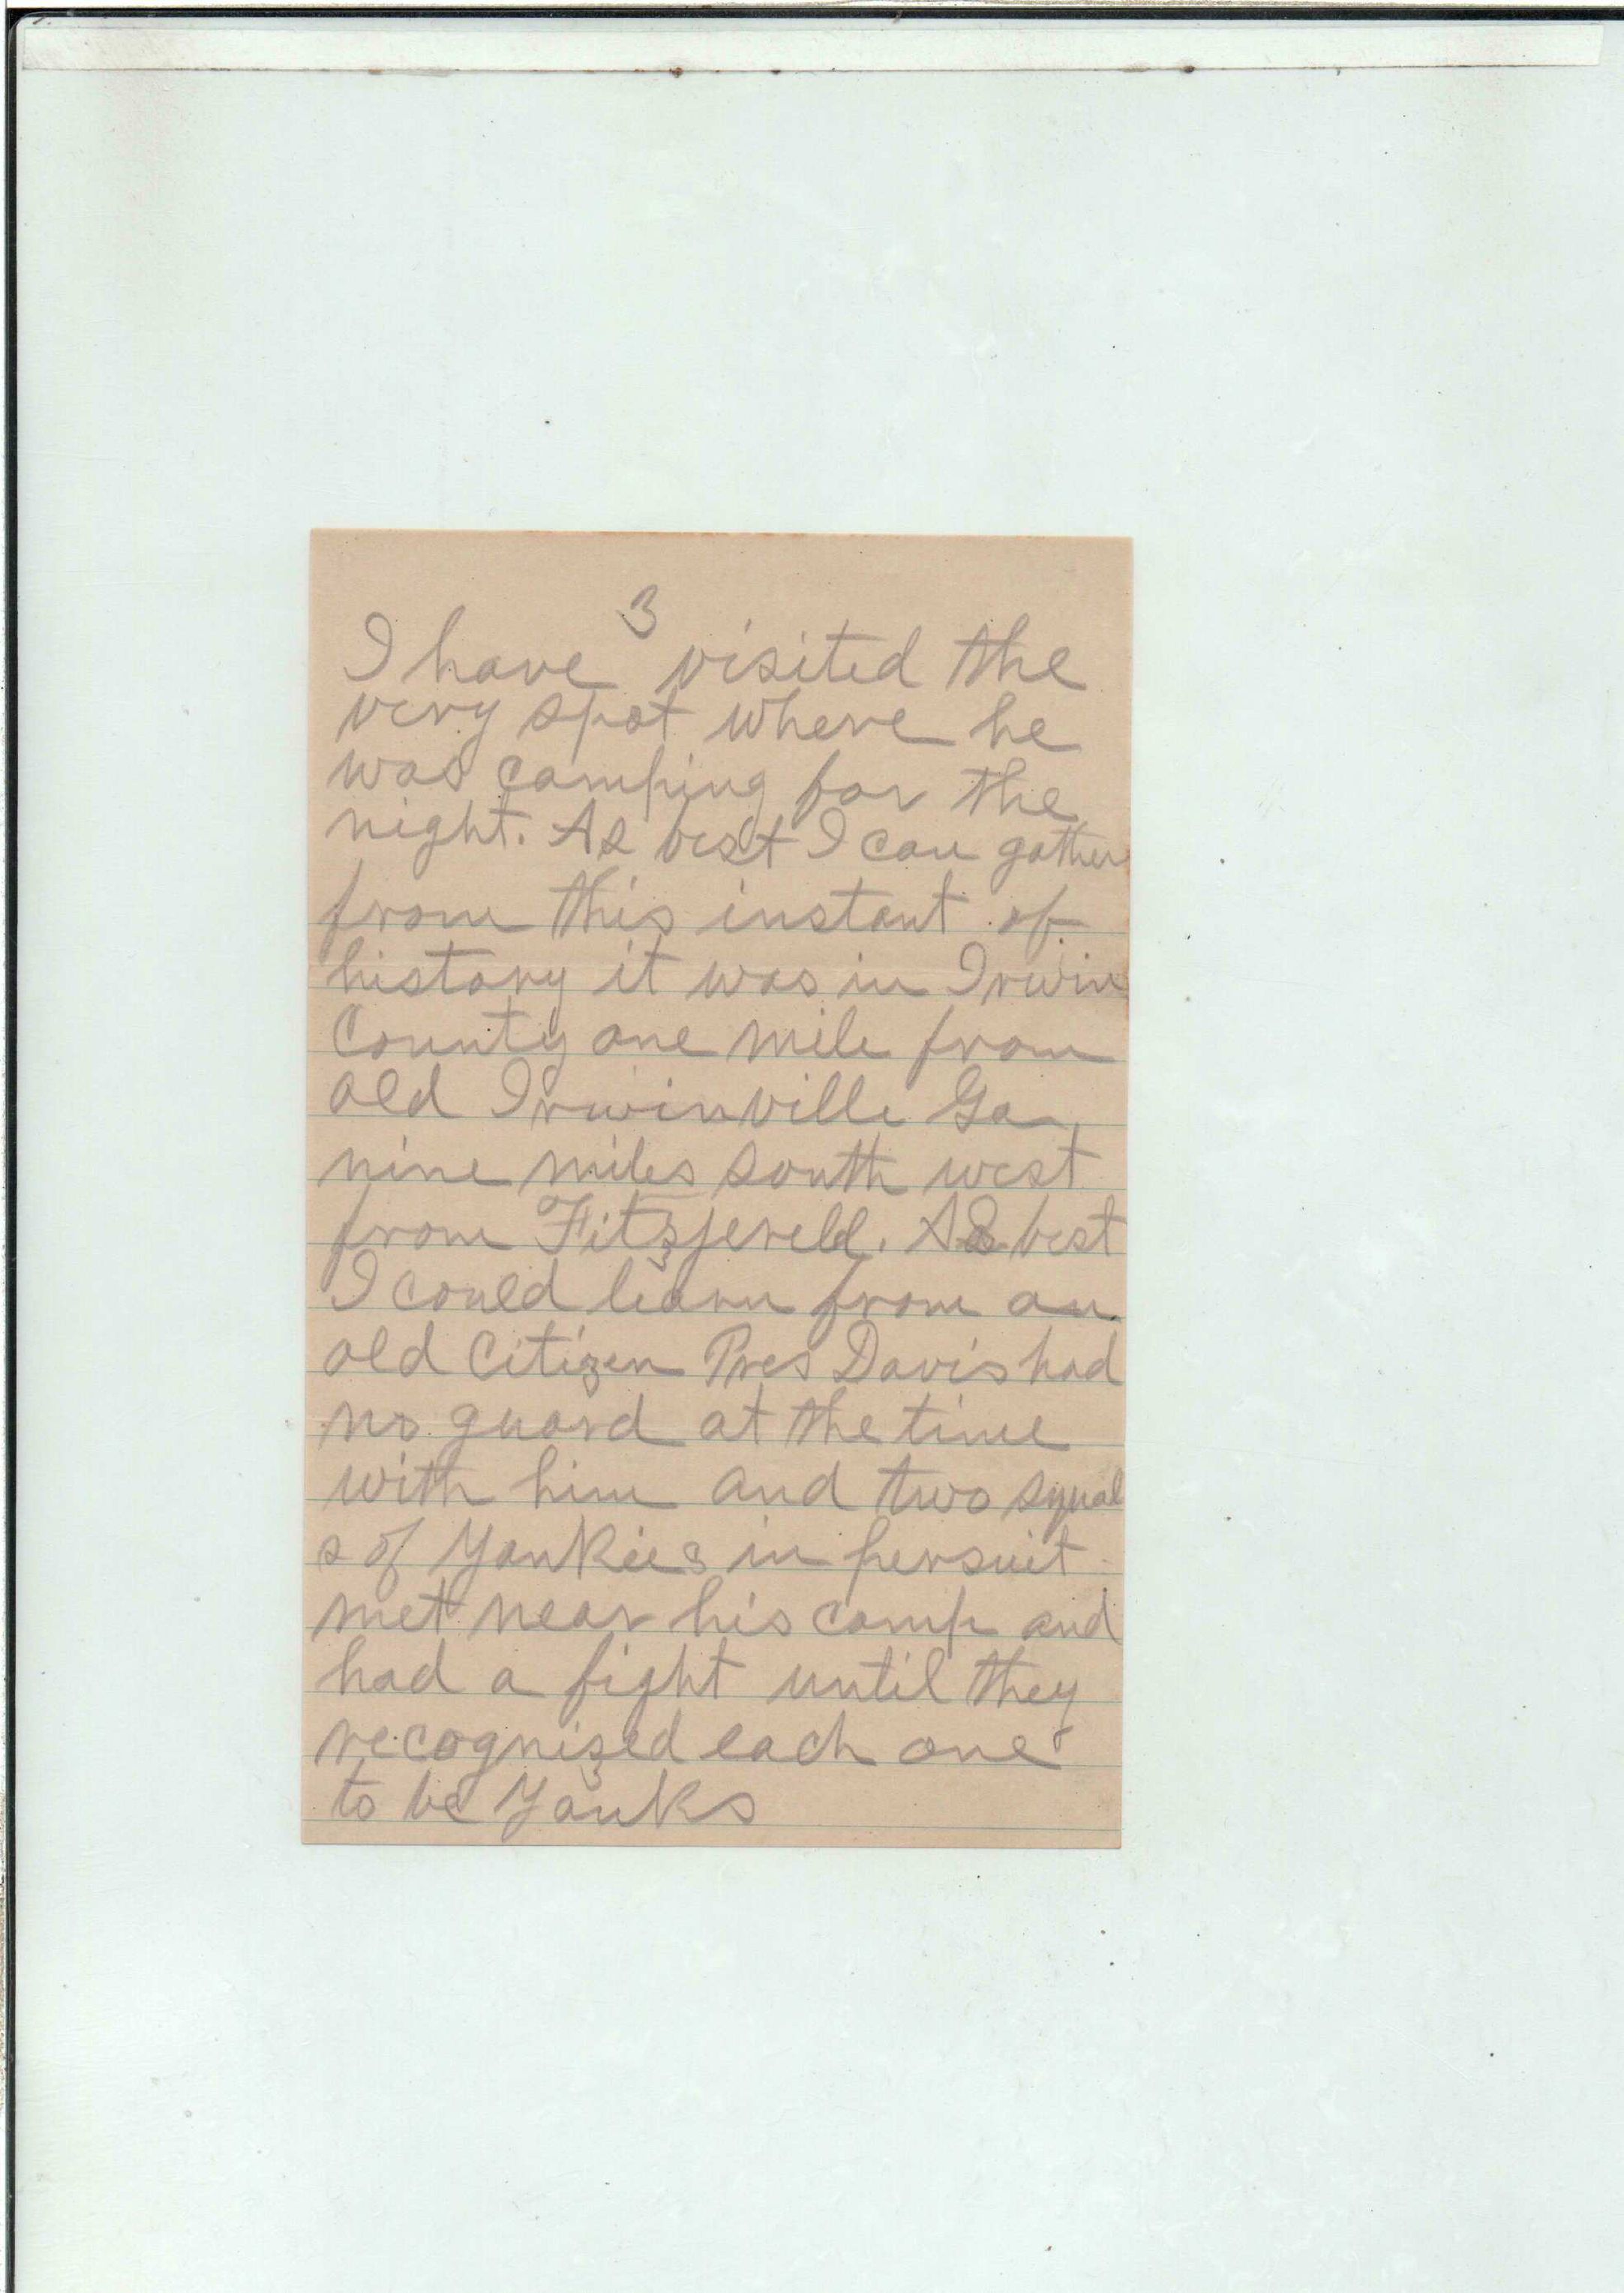 3
I have visited the
very spot where he
was camping for the
night. As best I can gather
from this instant of
history it was in Irwin
County one mile from
old Irwinville Ga,
nine miles south west
from Fitzjereld. As best
I could learn from an
old Citizen Pres Davis had
no guard at the time
with him and two squad
s of Yankies in persuit
met near his camp and
had a fight until they
recognized each one
to be Yanks